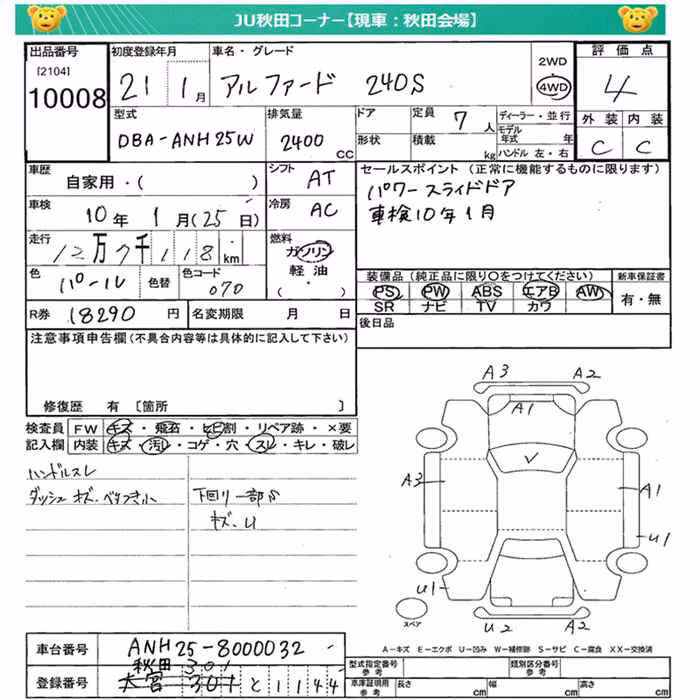 JU秋田コーナー【現車：秋田会場】
出品番号 初度登録年月 車名・グレード 2WD 評価点
[2104]
10008 21 1月 アルファード 240S 4WD 4
型式 排気量 ドア 定員 7人 ディーラー・並行 外装 内装
DBA-ANH25W 2400 CC 形状 積載 kg モデル年式 年 C C
ハンドル左・右
車歴 シフト AT セールスポイント（正常に機能するものに限ります）
自家用・（ ） パワースライドドア
車検 10年1月（25日） 冷房 AC 車検10年1月
走行 12万7千118km 燃料 ガソリン
軽油
・（ ）
色 パール 色替 色コード 070 装備品（純正品に限り○をつけてください） 新車保証書
PS PW ABS エアB AW 有・無
SR ナビ TV カワ
R券 18290円 名変期限 月 日 後日品
注意事項申告欄（不具合内容等は具体的に記入して下さい）
修復歴 有 [箇所 ]
検査員 FW キズ・飛石・ヒビ割・リペア跡・×要
記入欄 内装 キズ・汚レ・コゲ・穴・スレ・キレ・破レ
ハンドルスレ
ダッシュ キズ・ベタつき小 下回り一部サ
キズ・U
A3 A2
A1
A3 A1
U1
U1
U2 A2
スペア
A-キズ E-エクボ U-凹み W-補修跡 S-サビ C-腐食 XX-交換済
車台番号 ANH25-8000032
秋田 301
登録番号 大宮 301 と 1144
型式指定番号 参考 類別区分番号 参考
車庫証明用 参考 長さ cm 幅 cm 高さ cm